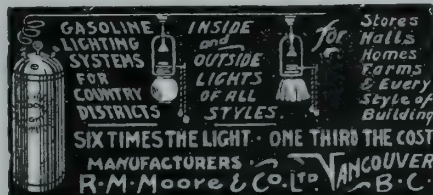 GASOLINE
LIGHTING
SYSTEMS
FOR
COUNTRY
DISTRICTS
INSIDE
and
OUTSIDE
LIGHTS
OF ALL
STYLES.
for
Stores
Halls
Homes
Farms
& Every
Style of
Building
SIX TIMES THE LIGHT · ONE THIRD THE COST
MANUFACTURERS
R·M·Moore & Co. LTD VANCOUVER
B·C·